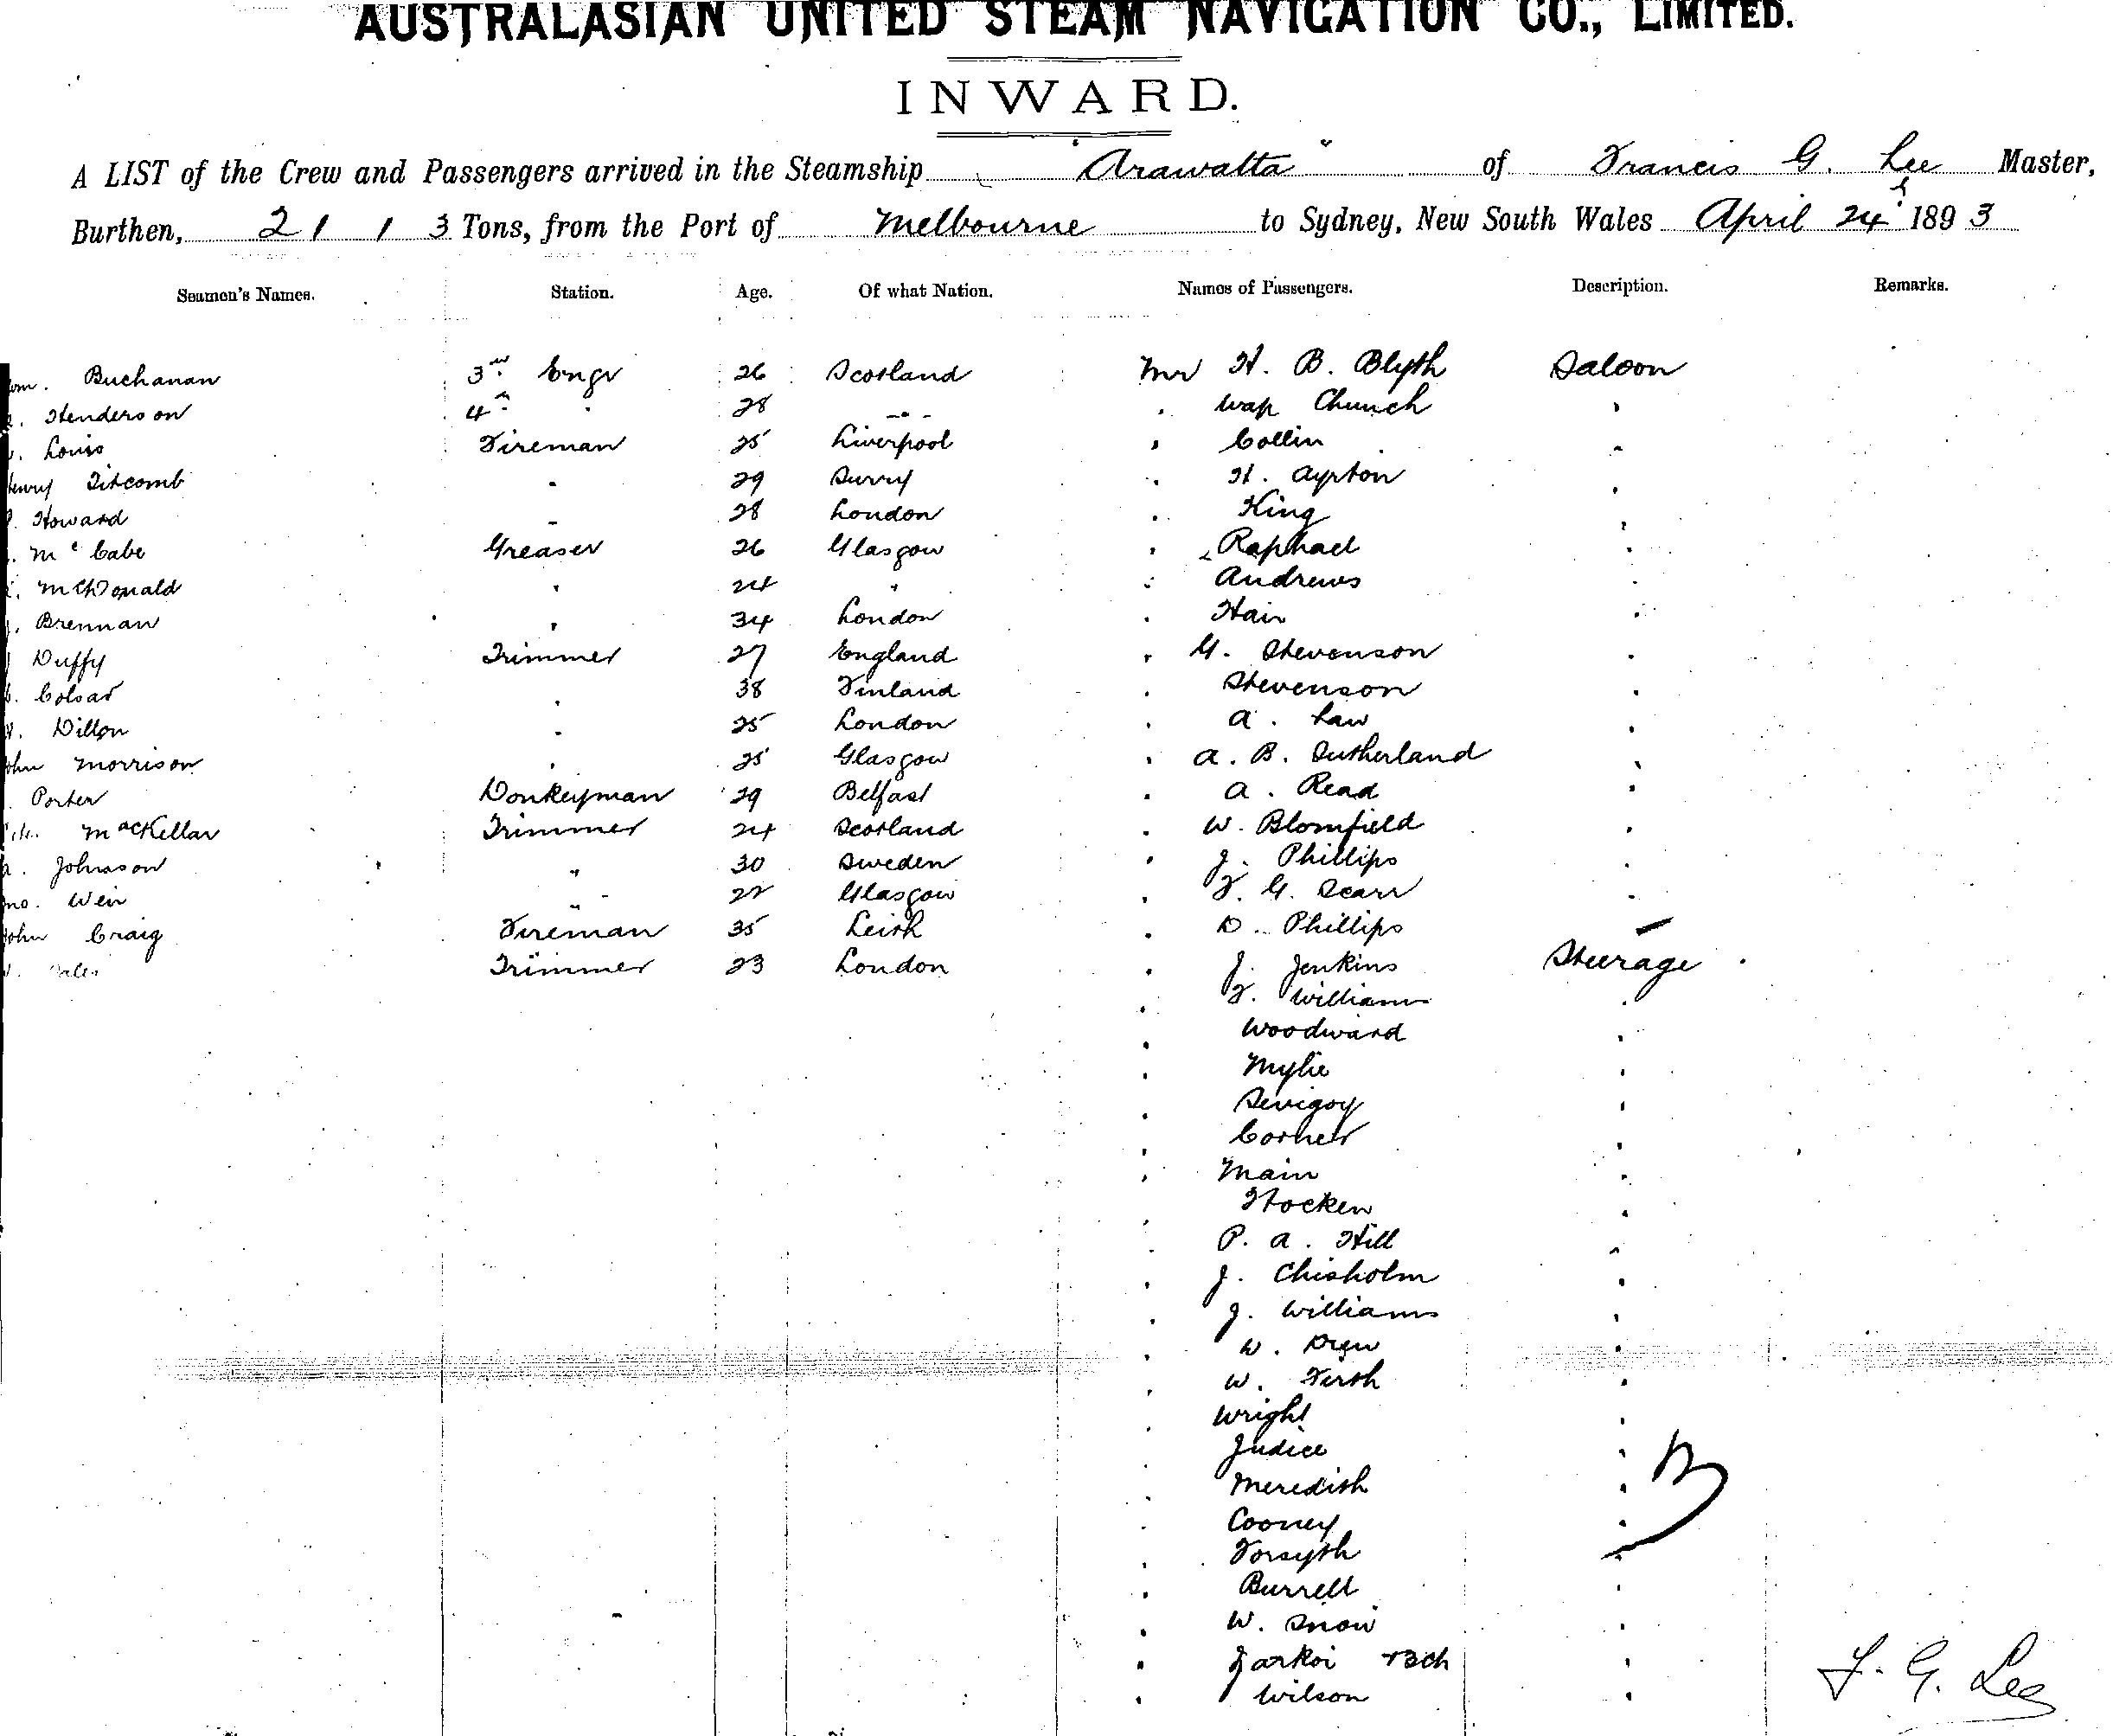 AUSTRALASIAN UNITED STEAM NAVIGATION CO., LIMITED.
INWARD.
A LIST of the Crew and Passengers arrived in the Steamship "Arawatta" of Francis G. Lee Master,
Burthen, 2113 Tons, from the Port of Melbourne to Sydney, New South Wales April 24 1893
Seamen's Names. Station. Age. Of what Nation. Names of Passengers. Description. Remarks.
Buchanan 3rd Engr 26 Scotland Mr H. B. Blyth Saloon
Henderson 4th " 28 " " Church "
Louis Fireman 25 Liverpool " Collin "
Henry Titcomb " 29 Surry " H. Ayrton "
Howard " 28 London " King "
McCabe Greaser 26 Glasgow " Raphael "
McDonald " 24 " " Andrews "
Brennan " 34 London " Hair "
Duffy Trimmer 27 England " G. Stevenson "
" 38 Finland " Stevenson "
Dillon " 25 London " A. Law "
John Morrison " 25 Glasgow " A. B. Sutherland "
Porter Donkeyman 29 Belfast " A. Read "
MacKellar Trimmer 24 Scotland " W. Blomfield "
Johnson " 30 Sweden " J. Phillips "
Weir " 22 Glasgow " F. G. Scarr "
John Craig Fireman 35 Leith " D. Phillips "
Trimmer 23 London " J. Jenkins Steerage
" F. Williams "
" Woodward "
" Mylie "
" "
" Corner "
" Main "
" Hocken "
" P. A. Hill "
" J. Chisholm "
" J. Williams "
" W. "
" W. Firth "
" Wright "
" Judice "
" Meredith "
" Cooney "
" Forsyth "
" Burrell "
" W. Snow "
" "
" Wilson "
F. G. Lee